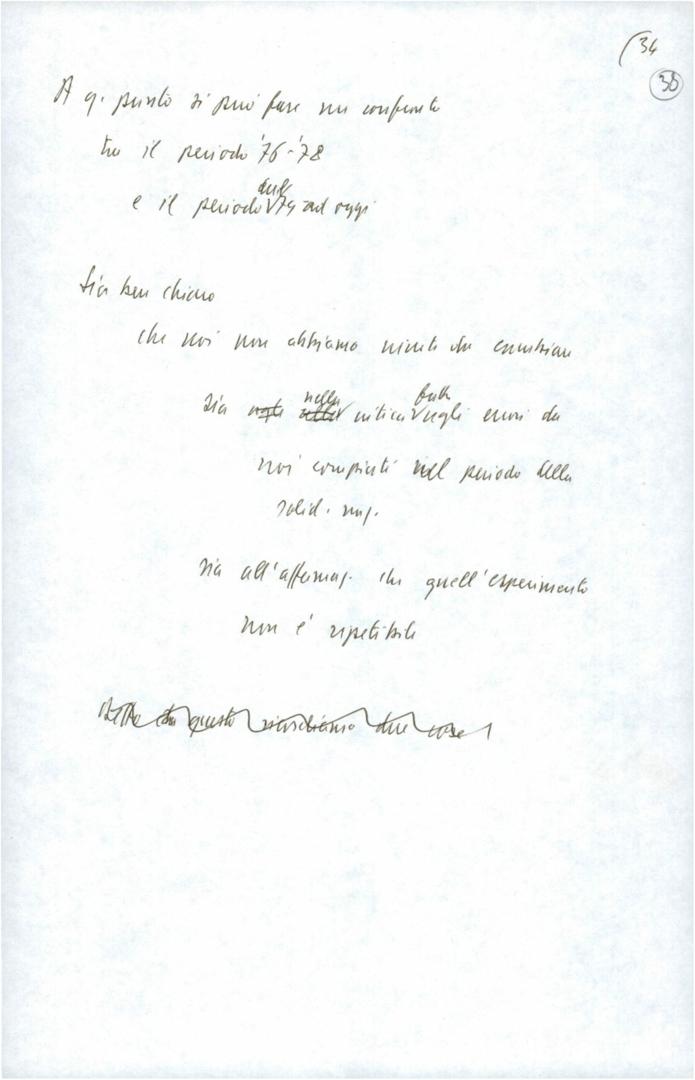 (34
38
A q. punto si può fare un confronto
tra il periodo '76-'78
e il periodo dal '79 ad oggi
Sia ben chiaro
che noi non abbiamo niente da cambiare
sia nella critica fatta agli errori da
noi compiuti nel periodo della
solid. naz.
sia all'affermaz. che quell'esperimento
non è ripetibile
Detto questo ricordiamo due cose